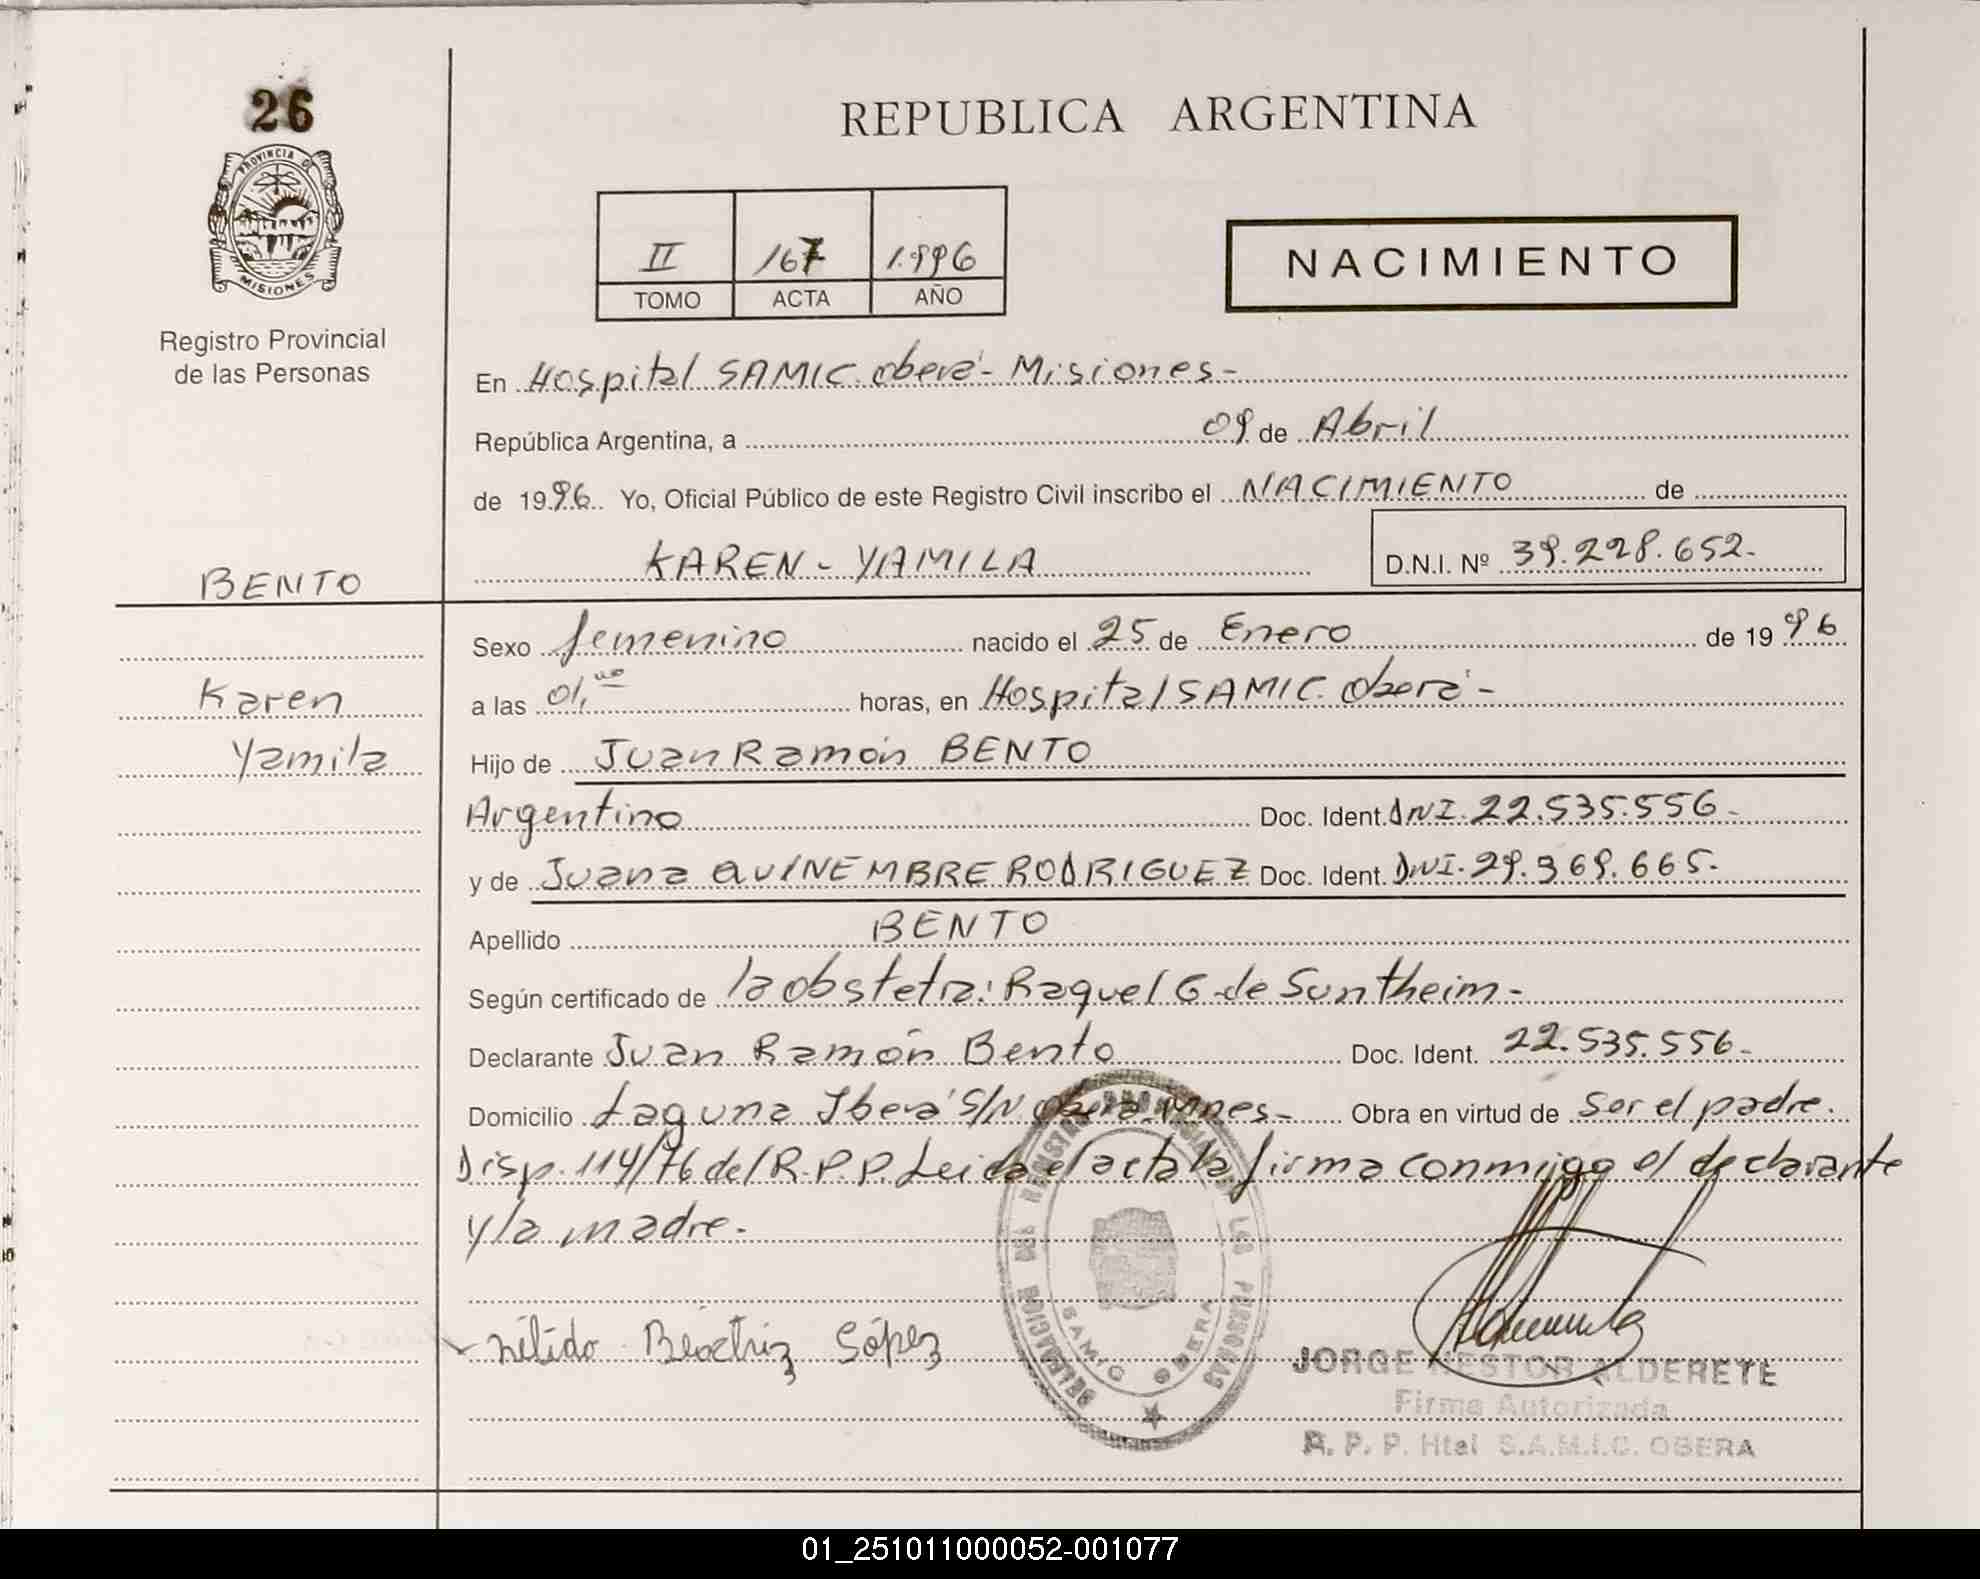 26
PROVINCIA DE
MISIONES
Registro Provincial
de las Personas
REPUBLICA ARGENTINA
II 167 1.996
TOMO ACTA AÑO
NACIMIENTO
En Hospital SAMIC. Oberá - Misiones -
República Argentina, a 09 de Abril
de 1996. Yo, Oficial Público de este Registro Civil inscribo el NACIMIENTO de
KAREN - YAMILA D.N.I. Nº 39.228.652.-
BENTO
Karen
Yamila
Sexo femenino nacido el 25 de Enero de 1996
a las 01, horas, en Hospital SAMIC. Oberá -
Hijo de Juan Ramón BENTO
Argentino Doc. Ident. DNI. 22.535.556 -
y de Juana QUINEMBRE RODRIGUEZ Doc. Ident. DNI. 29.369.665.-
Apellido BENTO
Según certificado de la obstetra: Raquel G. de Suntheim -
Declarante Juan Ramón Bento Doc. Ident. 22.535.556 -
Domicilio Laguna Iberá S/N Oberá. Mnes - Obra en virtud de Ser el padre.
Disp. 114/76 del R.P.P. Leida el acta la firma conmigo el declarante
y la madre.-
nélida Beatriz López
SAMIC OBERA
JORGE NESTOR ALDERETE
Firma Autorizada
R. P. P. Htal S.A.M.I.C. OBERA
01_251011000052-001077